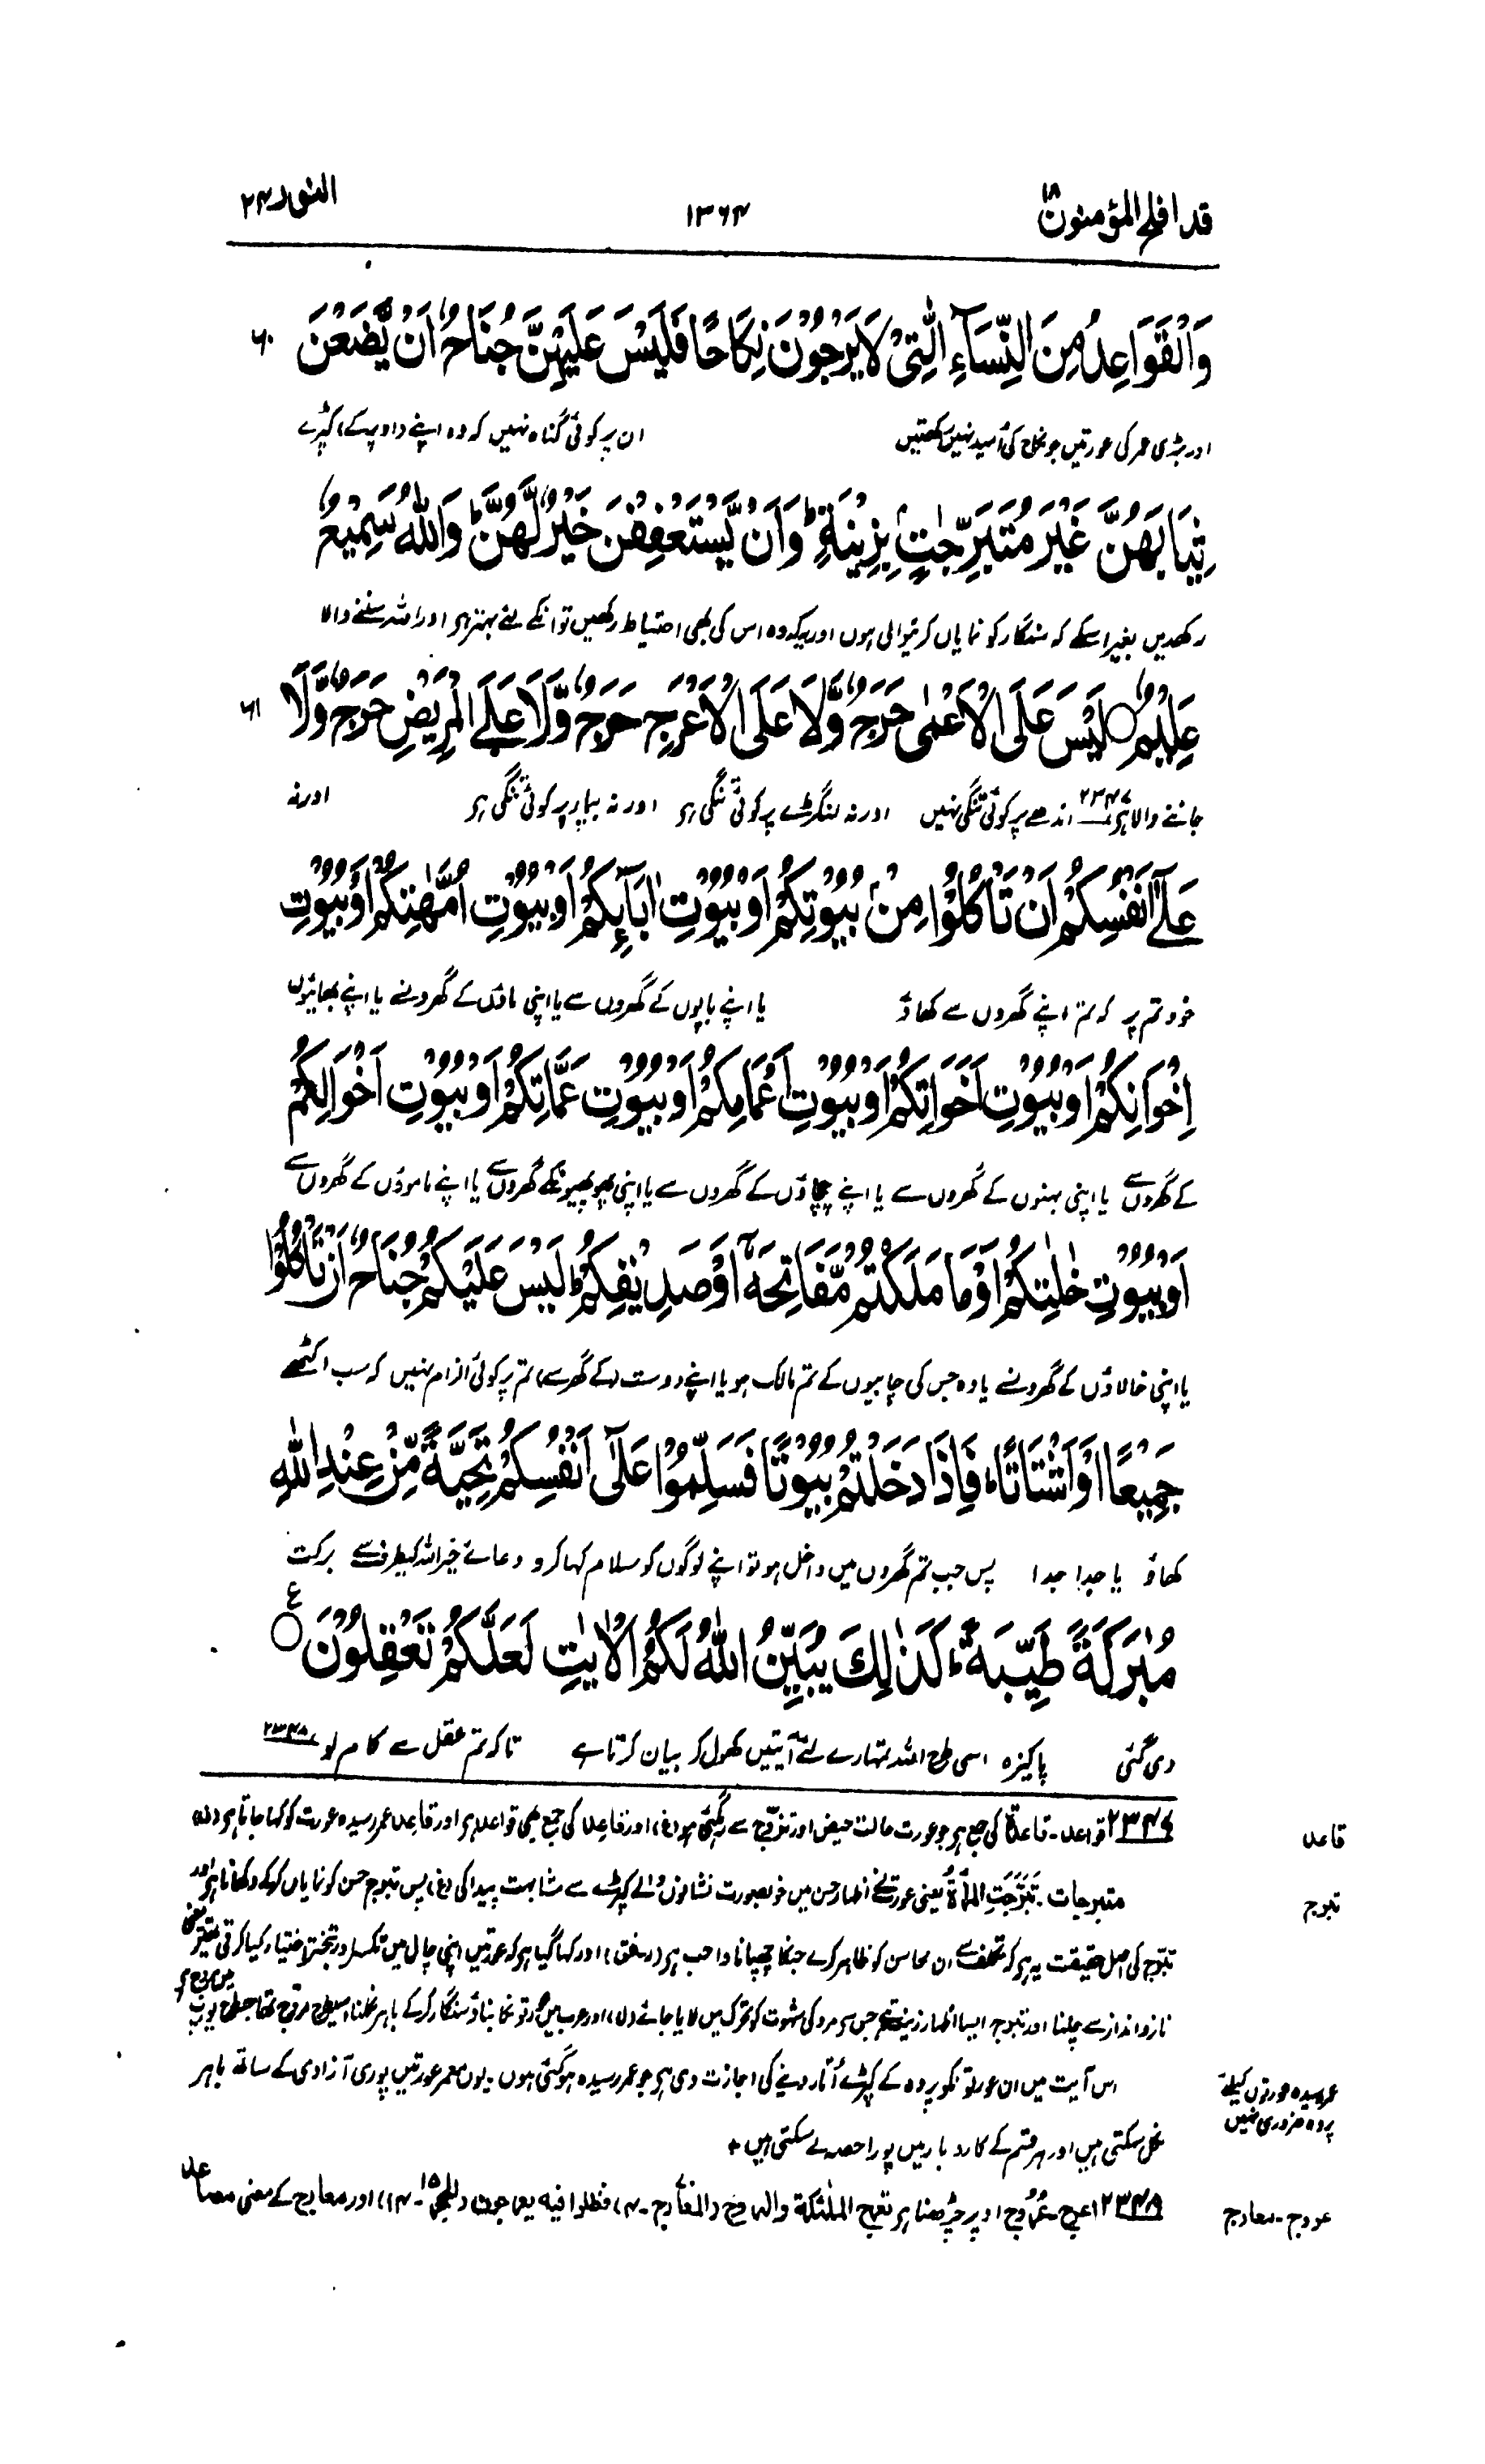 قد افلح المؤمنون ۱۸
۱۳۶۴
النور ۲۴
وَالْقَوَاعِدُ مِنَ النِّسَآءِ الّٰتِیْ لَا یَرْجُوْنَ نِکَاحًا فَلَیْسَ عَلَیْهِنَّ جُنَاحٌ اَنْ یَّضَعْنَ
۶۰
اور بڑی عمر کی عورتیں جو نکاح کی اُمید نہیں رکھتیں ان پر کوئی گناہ نہیں کہ وہ اپنے (اوپر کے) کپڑے
ثِیَابَهُنَّ غَیْرَ مُتَبَرِّجٰتٍۭ بِزِیْنَةٍ ؕ وَاَنْ یَّسْتَعْفِفْنَ خَیْرٌ لَّهُنَّ ؕ وَاللّٰهُ سَمِیْعٌ
رکھدیں بغیر اسکے کہ سنگار کو نمایاں کرنیوالی ہوں اور یہ کہ وہ اس کی بھی احتیاط رکھیں تو انکے لئے بہتر ہو اور اللہ سننے والا
عَلِیْمٌ ○ لَیْسَ عَلَی الْاَعْمٰی حَرَجٌ وَّلَا عَلَی الْاَعْرَجِ حَرَجٌ وَّلَا عَلَی الْمَرِیْضِ حَرَجٌ وَّلَا
۶۱
جاننے والا ہو ۲۳۴۷ اندھے پر کوئی تنگی نہیں اور نہ لنگڑے پر کوئی تنگی ہو اور نہ بیمار پر کوئی تنگی ہو اور نہ
عَلٰۤی اَنْفُسِکُمْ اَنْ تَاْکُلُوْا مِنْۢ بُیُوْتِکُمْ اَوْ بُیُوْتِ اٰبَآئِکُمْ اَوْ بُیُوْتِ اُمَّهٰتِکُمْ اَوْ بُیُوْتِ
خود تم پر کہ تم اپنے گھروں سے کھاؤ یا اپنے باپوں کے گھروں سے یا اپنی ماؤں کے گھروں سے یا اپنے بھائیوں
اِخْوَانِکُمْ اَوْ بُیُوْتِ اَخَوَاتِکُمْ اَوْ بُیُوْتِ اَعْمَامِکُمْ اَوْ بُیُوْتِ عَمّٰتِکُمْ اَوْ بُیُوْتِ اَخْوَالِکُمْ
کے گھروں سے یا اپنی بہنوں کے گھروں سے یا اپنے چچاؤں کے گھروں سے یا اپنی پھوپھیونکے گھروں سے یا اپنے ماموؤں کے گھروں سے
اَوْ بُیُوْتِ خٰلٰتِکُمْ اَوْ مَا مَلَکْتُمْ مَّفَاتِحَهٗۤ اَوْ صَدِیْقِکُمْ ؕ لَیْسَ عَلَیْکُمْ جُنَاحٌ اَنْ تَاْکُلُوْا
یا اپنی خالاؤں کے گھروں سے یا وہ جس کی چابیوں کے تم مالک ہو یا اپنے دوست (کے گھر سے) تم پر کوئی الزام نہیں کہ سب اکٹھے
جَمِیْعًا اَوْ اَشْتَاتًا ؕ فَاِذَا دَخَلْتُمْ بُیُوْتًا فَسَلِّمُوْا عَلٰۤی اَنْفُسِکُمْ تَحِیَّةً مِّنْ عِنْدِ اللّٰهِ
کھاؤ یا جدا جدا پس جب تم گھروں میں داخل ہو تو اپنے لوگوں کو سلام کہا کرو دعائے خیر اللہ کیطرف سے برکت
مُبٰرَکَةً طَیِّبَةً ؕ کَذٰلِكَ یُبَیِّنُ اللّٰهُ لَکُمُ الْاٰیٰتِ لَعَلَّکُمْ تَعْقِلُوْنَ ○ ع
دی گئی پاکیزہ اسی طرح اللہ تمہارے لئے آیتیں کھول کر بیان کرتا ہے تاکہ تم عقل سے کام لو ۲۳۴۸
قاعد
۲۳۴۷ قواعد۔ قاعدۃ کی جمع ہو جو عورت حالت حیض اور تزوّج سے رہ گئی ہو (غ) اور قاعد کی جمع بھی قواعد ہو اور قاعد عمر رسیدہ عورت کو کہا جاتا ہو (ل)
تبرج
متبرجات۔ تَبَرَّجَتِ المرأۃُ یعنی عورت نے اظہار حسن میں خوبصورت نشانوں والے کپڑے سے مشابہت پیدا کی (غ) پس تبرج حسن کو نمایاں کرکے دکھانا ہو اور
تبرّج کی اصل حقیقت یہ ہو کہ تکلف سے ان محاسن کو ظاہر کرے جنکا چھپانا واجب ہو اور کہا گیا ہو کہ عورتیں اپنی چال میں تکسر اور تبختر اختیار کیا کرتی تھیں یعنی
ناز و انداز سے چلنا اور تبرج ایسا اظہار زینت ہو جس سے مرد کی شہوت کو تحرک میں لایا جائے (ل) اور عرب میں عورتونکا بناؤ سنگار کرکے باہر نکلنا اسیطرح مروّج تھا جسطرح یورپ میں مروج ہو
عمر رسیدہ عورتوں کیلئے پردہ ضروری نہیں
اس آیت میں ان عورتونکو پردہ کے کپڑے اُتار دینے کی اجازت دی ہو جو عمر رسیدہ ہو گئی ہوں۔ یوں معمر عورتیں پوری آزادی کے ساتھ باہر
نکل سکتی ہیں اور ہر قسم کے کاروبار میں پورا حصہ لے سکتی ہیں +
عروج۔ معارج
۲۳۴۸ اعرج۔ عُرُوج اوپر چڑھنا ہو تعرج الملٰئکة والروح (المعارج۔۴) فظلوا فیه یعرجون (الحجر ۱۵۔۱۴) اور معارج کے معنی مصاعد